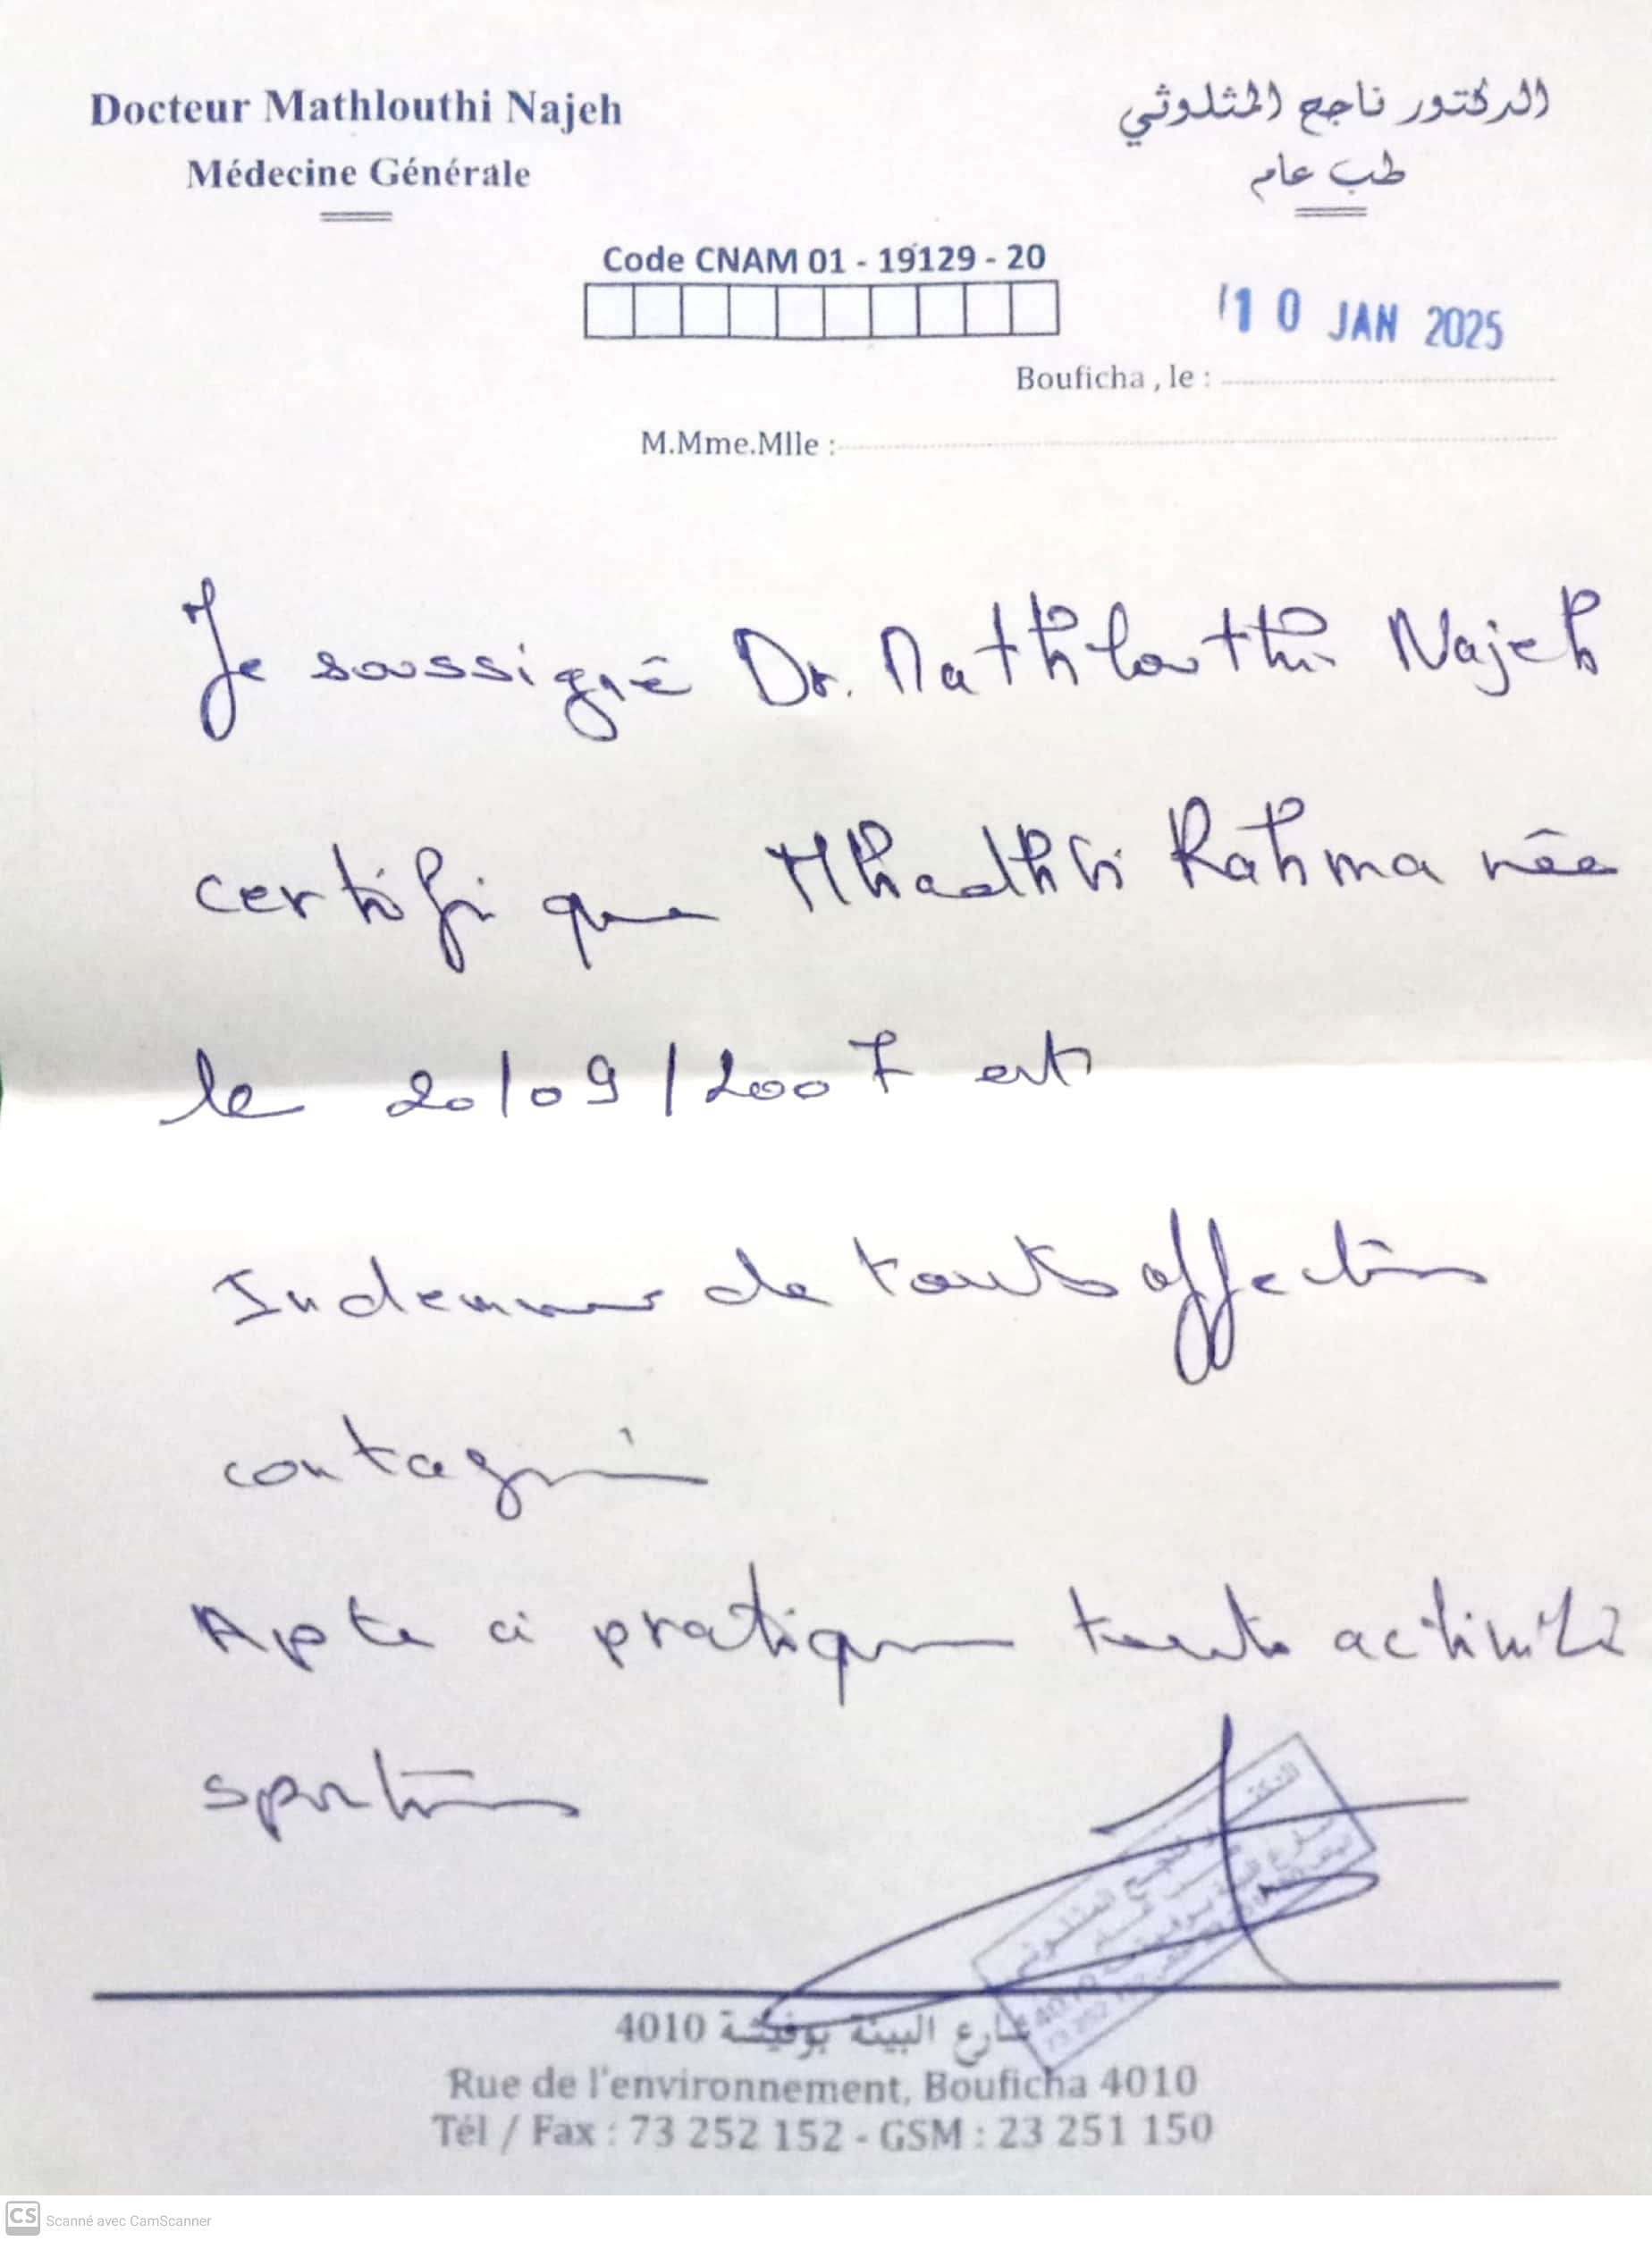 Docteur Mathlouthi Najeh
Médecine Générale
الدكتور ناجح المثلوثي
طب عام
Code CNAM 01 - 19129 - 20
10 JAN 2025
Bouficha , le :
M.Mme.Mlle :
Je soussigné Dr. Mathlouthi Najeh
certifi que Mhadhbi Rahma née
le 20/09/2007 est
Indemne de toute affection
contagieuse
Apte à pratiquer toute activité
sportive
شارع البيئة بوفيشة 4010
Rue de l'environnement, Bouficha 4010
Tél / Fax : 73 252 152 - GSM : 23 251 150
CS Scanné avec CamScanner